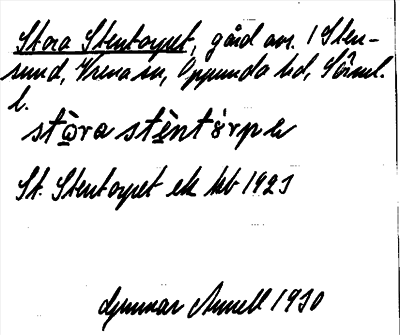 Stora Stentorpet, gård avs. 1 Sten-
sund, Vrena sn, Oppunda hd, Söml.
l.
stὼ̣ra stẹ̀ntórpe
St. Stentorpet ek kb 1921
Gunnar Annell 1930